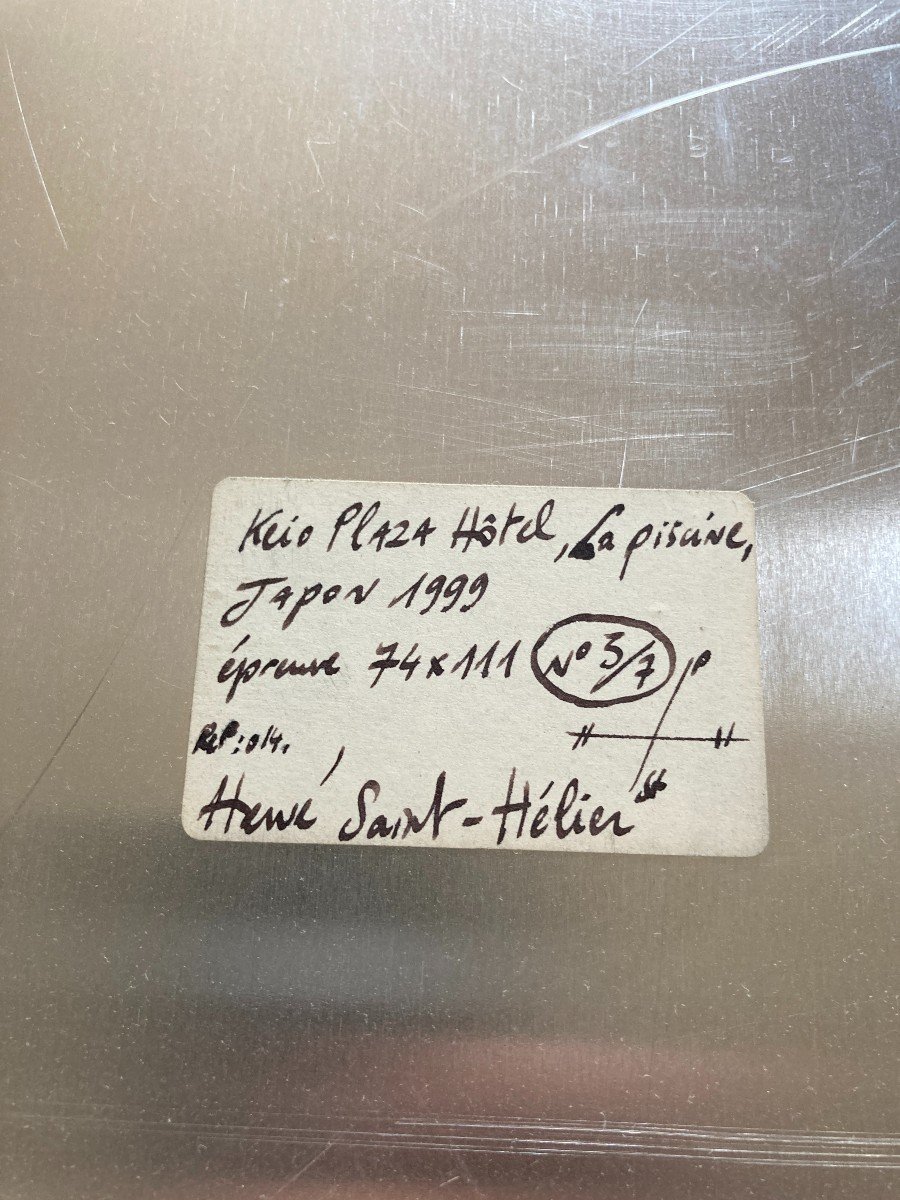 Keio PLAZA Hôtel, La piscine,
JAPON 1999
épreuve 74x111 N° 3/7
Ref: 014.
Hervé Saint-Hélier